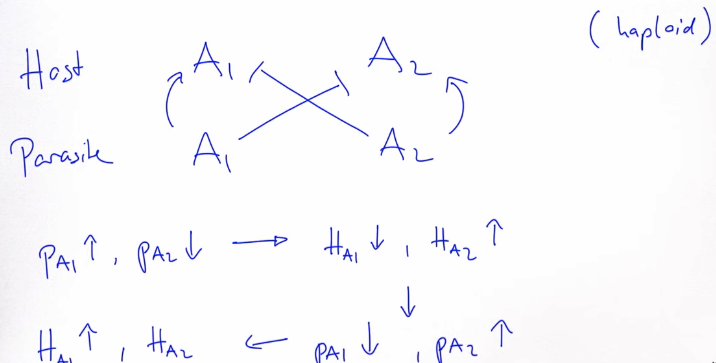 (haploid)
Host A₁ A₂
Parasite A₁ A₂
PA₁ ↑, PA₂ ↓ → HA₁ ↓, HA₂ ↑
↓
HA₁ ↑, HA₂ ← PA₁ ↓, PA₂ ↑